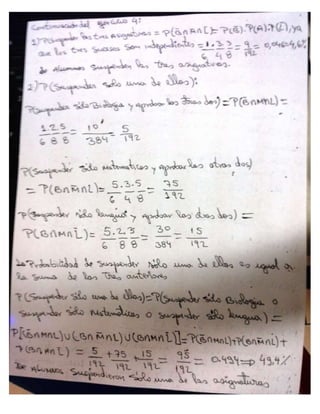 Continuación del ejercicio 4:
1) P(Suspender las tres asignaturas) = P(B̄∩M̄∩L̄) = P(B̄)·P(M̄)·P(L̄), ya
que los tres sucesos son independientes = 1/6 · 3/4 · 3/8 = 9/192 = 0,046 = 4,6%
de alumnos suspenden las tres asignaturas.
2) P(Suspender sólo una de ellas):
P(Suspender sólo Biología y aprobar las otras dos) = P(B̄∩M∩L) =
1/6 · 2/8 · 5/8 = 10/384 = 5/192
P(Suspender sólo Matemáticas y aprobar las otras dos)
= P(B∩M̄∩L) = 5/6 · 3/4 · 5/8 = 75/192
P(Suspender sólo lengua y aprobar las otras dos) =
P(B∩M∩L̄) = 5/6 · 2/8 · 3/8 = 30/384 = 15/192
La Probabilidad de suspender sólo una de ellas es igual a
la suma de las tres anteriores
P(Suspender sólo una de ellas) = P(Suspender sólo Biología o
suspender sólo Matemáticas o suspender sólo lengua) =
P[(B̄∩M∩L)∪(B∩M̄∩L)∪(B∩M∩L̄)] = P(B̄∩M∩L)+P(B∩M̄∩L)+
P(B∩M∩L̄) = 5/192 + 75/192 + 15/192 = 95/192 = 0.494 ⇒ 49,4%
de alumnos suspendieron sólo una de las asignaturas